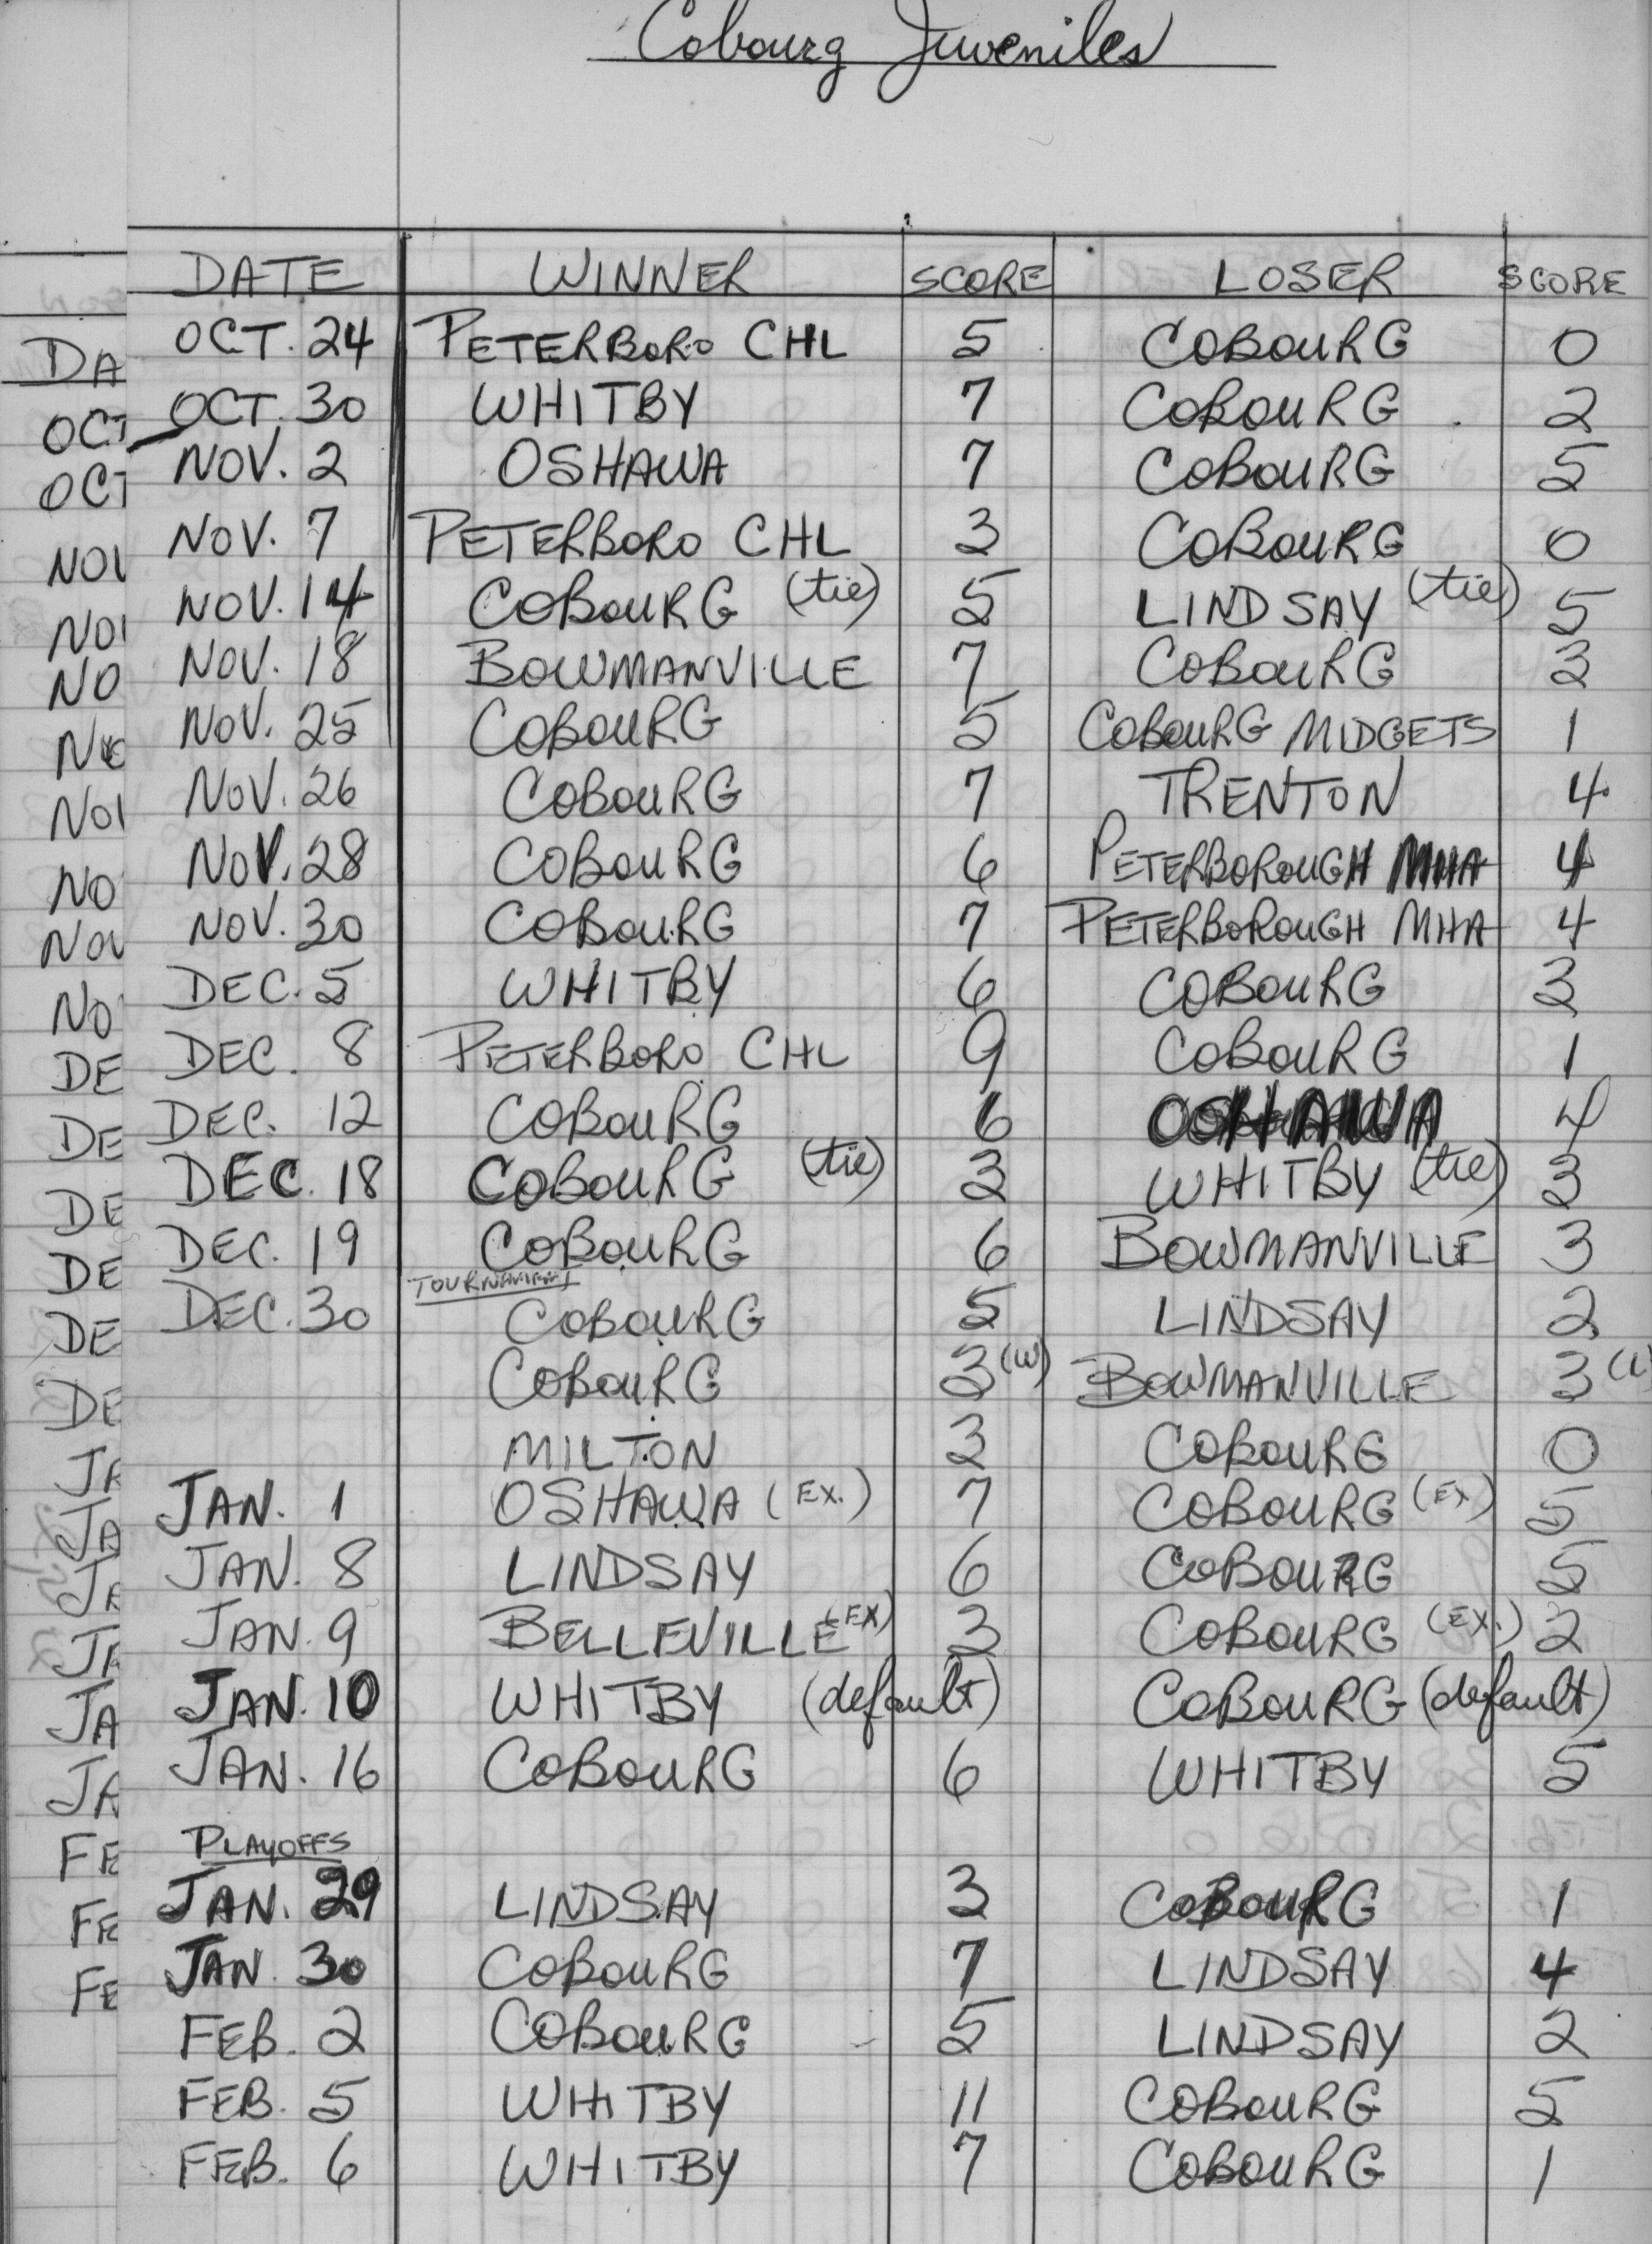 Cobourg Juveniles
DATE WINNER SCORE LOSER SCORE
OCT. 24 PETERBORO CHL 5 COBOURG 0
DA
OCT. 30 WHITBY 7 COBOURG 2
OCT
NOV. 2 OSHAWA 7 COBOURG 5
OCT
NOV. 7 PETERBORO CHL 3 COBOURG 0
NOV
NOV. 14 COBOURG (tie) 5 LINDSAY (tie) 5
NO
NOV. 18 BOWMANVILLE 7 COBOURG 3
NO
NOV. 25 COBOURG 5 COBOURG MIDGETS 1
NO
NOV. 26 COBOURG 7 TRENTON 4
NOV
NOV. 28 COBOURG 6 PETERBOROUGH MHA 4
NO
NOV. 30 COBOURG 7 PETERBOROUGH MHA 4
NOV
DEC. 5 WHITBY 6 COBOURG 3
NO
DEC. 8 PETERBORO CHL 9 COBOURG 1
DE
DEC. 12 COBOURG 6 OSHAWA 4
DE
DEC. 18 COBOURG (tie) 3 WHITBY (tie) 3
DE
DEC. 19 COBOURG 6 BOWMANVILLE 3
DE
TOURNAMENT
DEC. 30 COBOURG 5 LINDSAY 2
DE
COBOURG 3 (W) BOWMANVILLE 3 (L
DE
MILTON 3 COBOURG 0
JA
JAN. 1 OSHAWA (EX.) 7 COBOURG (EX) 5
JA
JAN. 8 LINDSAY 6 COBOURG 5
JA
JAN. 9 BELLEVILLE (EX) 3 COBOURG (EX.) 2
JA
JAN. 10 WHITBY (default) COBOURG (default)
JA
JAN. 16 COBOURG 6 WHITBY 5
JA
PLAYOFFS
FE
JAN. 29 LINDSAY 3 COBOURG 1
FE
JAN. 30 COBOURG 7 LINDSAY 4
FE
FEB. 2 COBOURG 5 LINDSAY 2
FEB. 5 WHITBY 11 COBOURG 5
FEB. 6 WHITBY 7 COBOURG 1